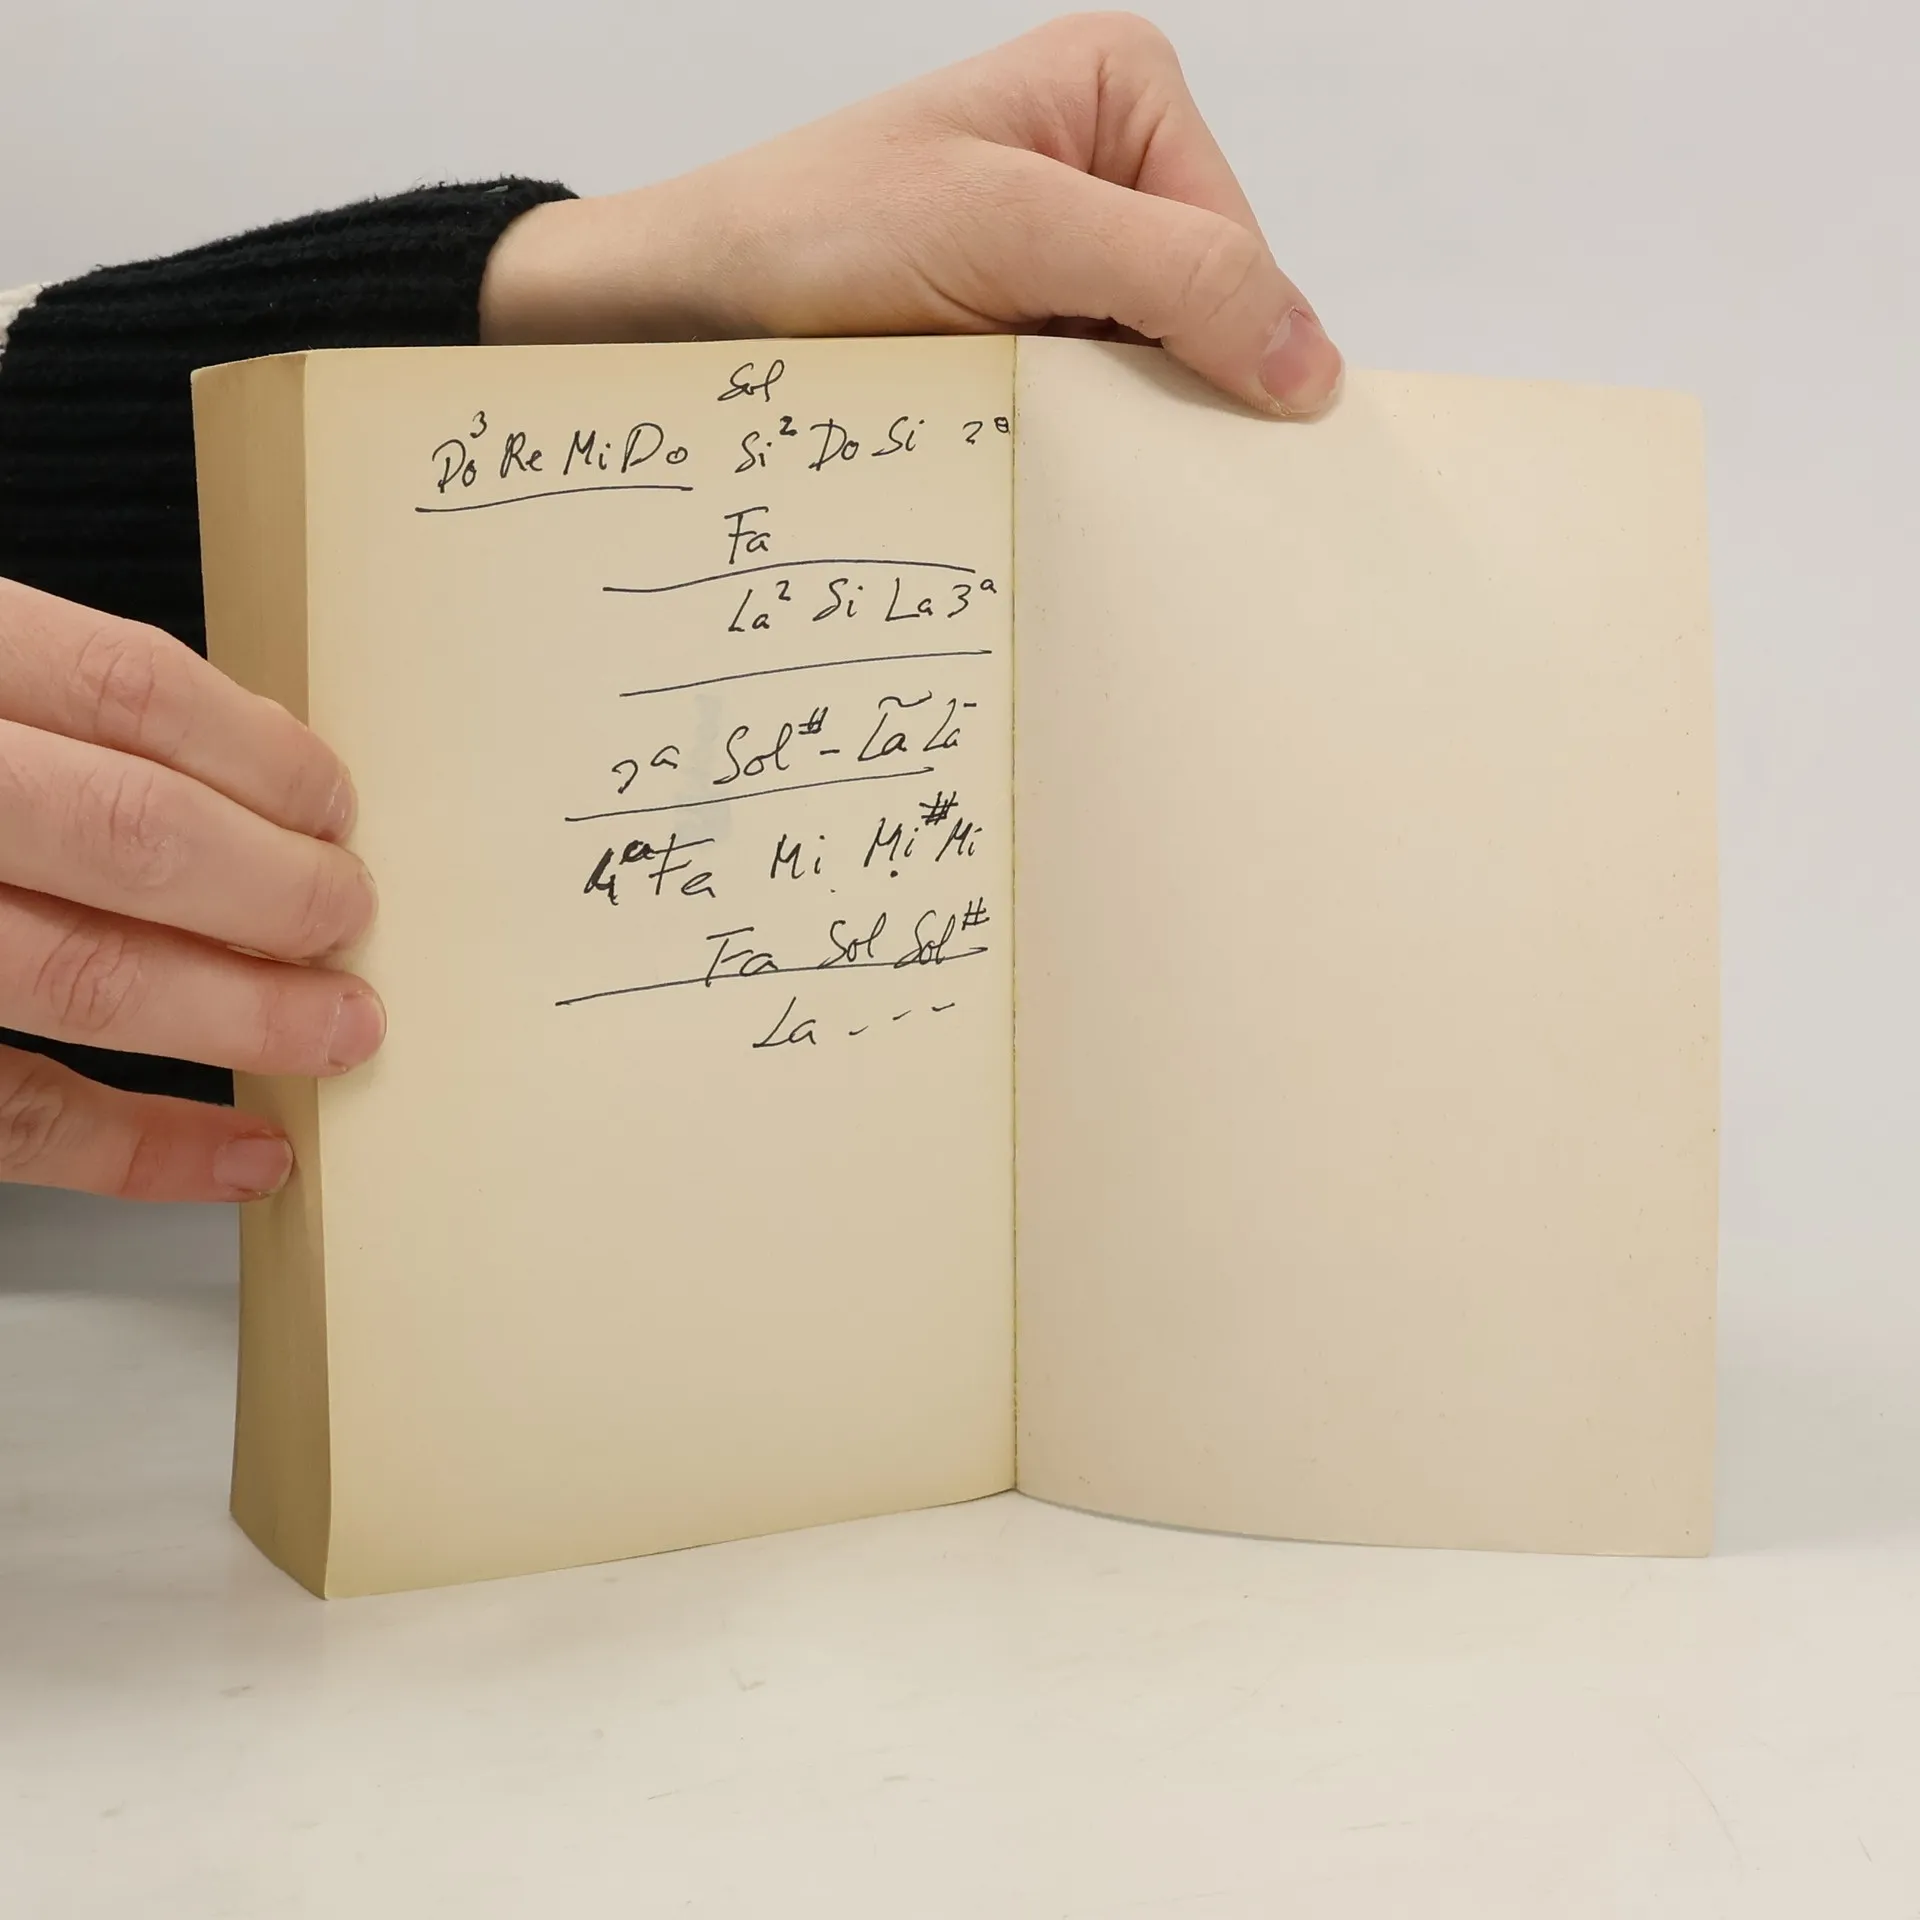 Sol
Do³ Re Mi Do Si² Do Si 2ª
Fa
La² Si La 3ª
2ª Sol# - La La
4ª Fa Mi Mi# Mi
Fa Sol Sol#
La - - -